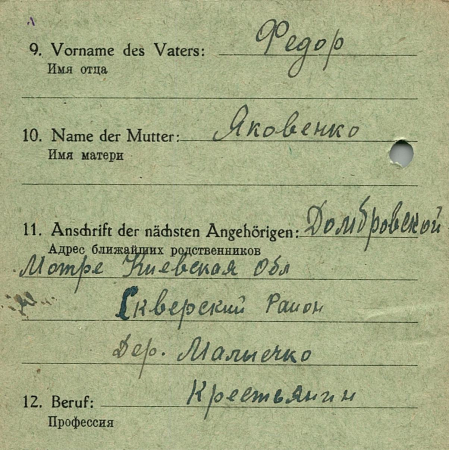 9. Vorname des Vaters: Федор
Имя отца
10. Name der Mutter: Яковенко
Имя матери
11. Anschrift der nächsten Angehörigen: Домбровской
Адрес ближайших родственников
Мотре Киевская Обл
Скверский Район
Дер. Малысчко
12. Beruf: Крестьянин
Профессия